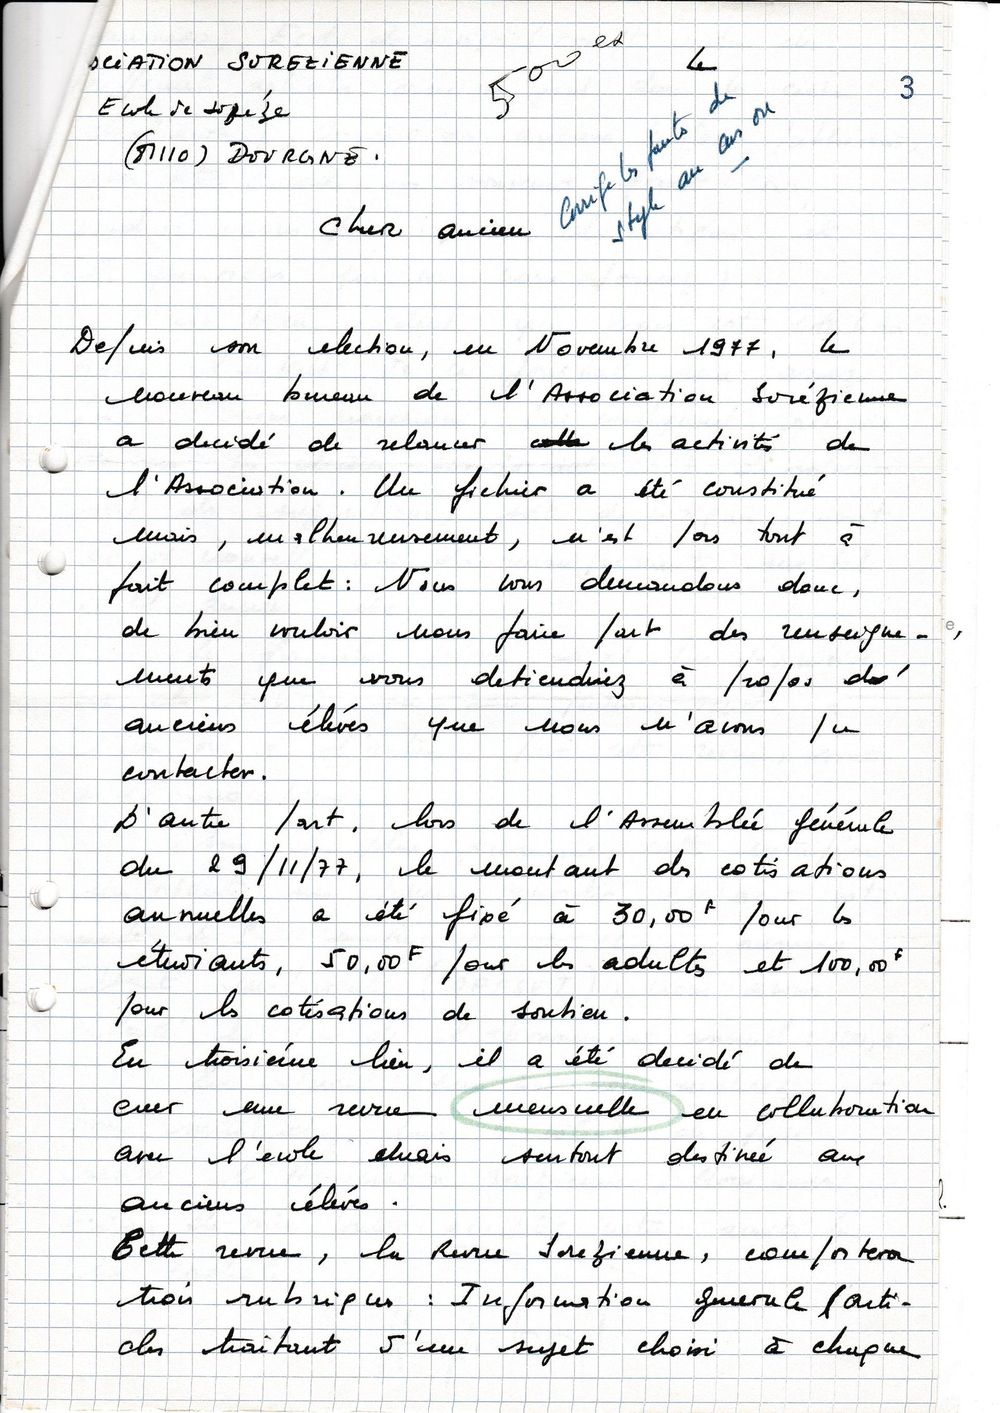 OCIATION SOREZIENNE
500 ex
Le
3
Ecole de Sorèze
(81110) DOURGNE.
Corrige les fautes de
style au cas où
Cher ancien
Depuis son election, en Novembre 1977, le
nouveau bureau de l'Association Sorézienne
a decidé de relancer les activités de
l'Association. Un fichier a été constitué
mais, malheureusement, n'est pas tout à
fait complet: Nous vous demandons donc,
de bien vouloir nous faire part des renseigne-
ments que vous detiendriez à propos des
anciens élèves que nous n'avons pu
contacter.
D'autre part, lors de l'Assemblée générale
du 29/11/77, le montant des cotisations
annuelles a été fixé à 30,00F pour les
étudiants, 50,00F pour les adultes et 100,00F
pour les cotisations de soutien.
En troisième lieu, il a été decidé de
creer une revue mensuelle en collaboration
avec l'école mais surtout destinée aux
anciens élèves.
Cette revue, la Revue Sorezienne, comportera
trois rubriques : Information generale (arti-
cles traitant d'un sujet choisi à chaque